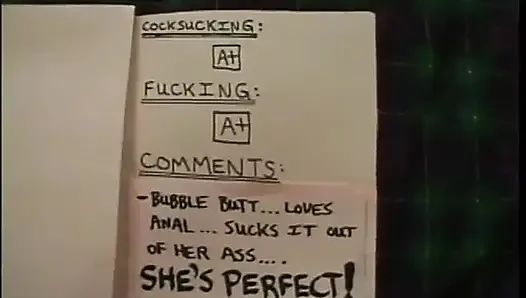 COCKSUCKING:
A+
FUCKING:
A+
COMMENTS:
- BUBBLE BUTT... LOVES
ANAL... SUCKS IT OUT
OF HER ASS....
SHE'S PERFECT!